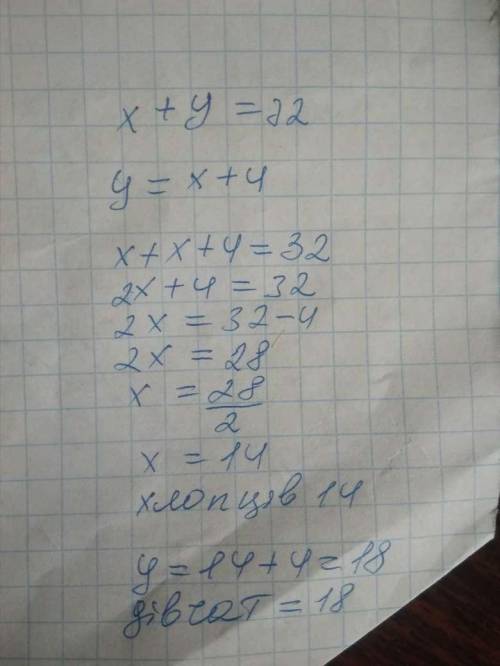 x + y = 32
y = x + 4
x + x + 4 = 32
2x + 4 = 32
2x = 32 - 4
2x = 28
x = 28/2
x = 14
хлопців 14
y = 14 + 4 = 18
дівчат = 18